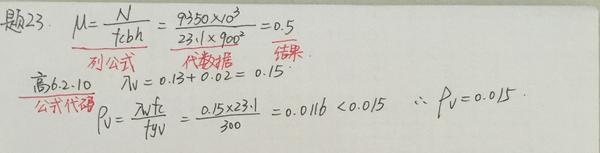 题23. μ = N/fcbh = 9350×10³/23.1×900² = 0.5
列公式 代数据 结果
高6.2.10 λv = 0.13 + 0.02 = 0.15.
公式代码 ρv = λvfc/fyv = 0.15×23.1/300 = 0.0116 < 0.015 ∴ ρv = 0.015.